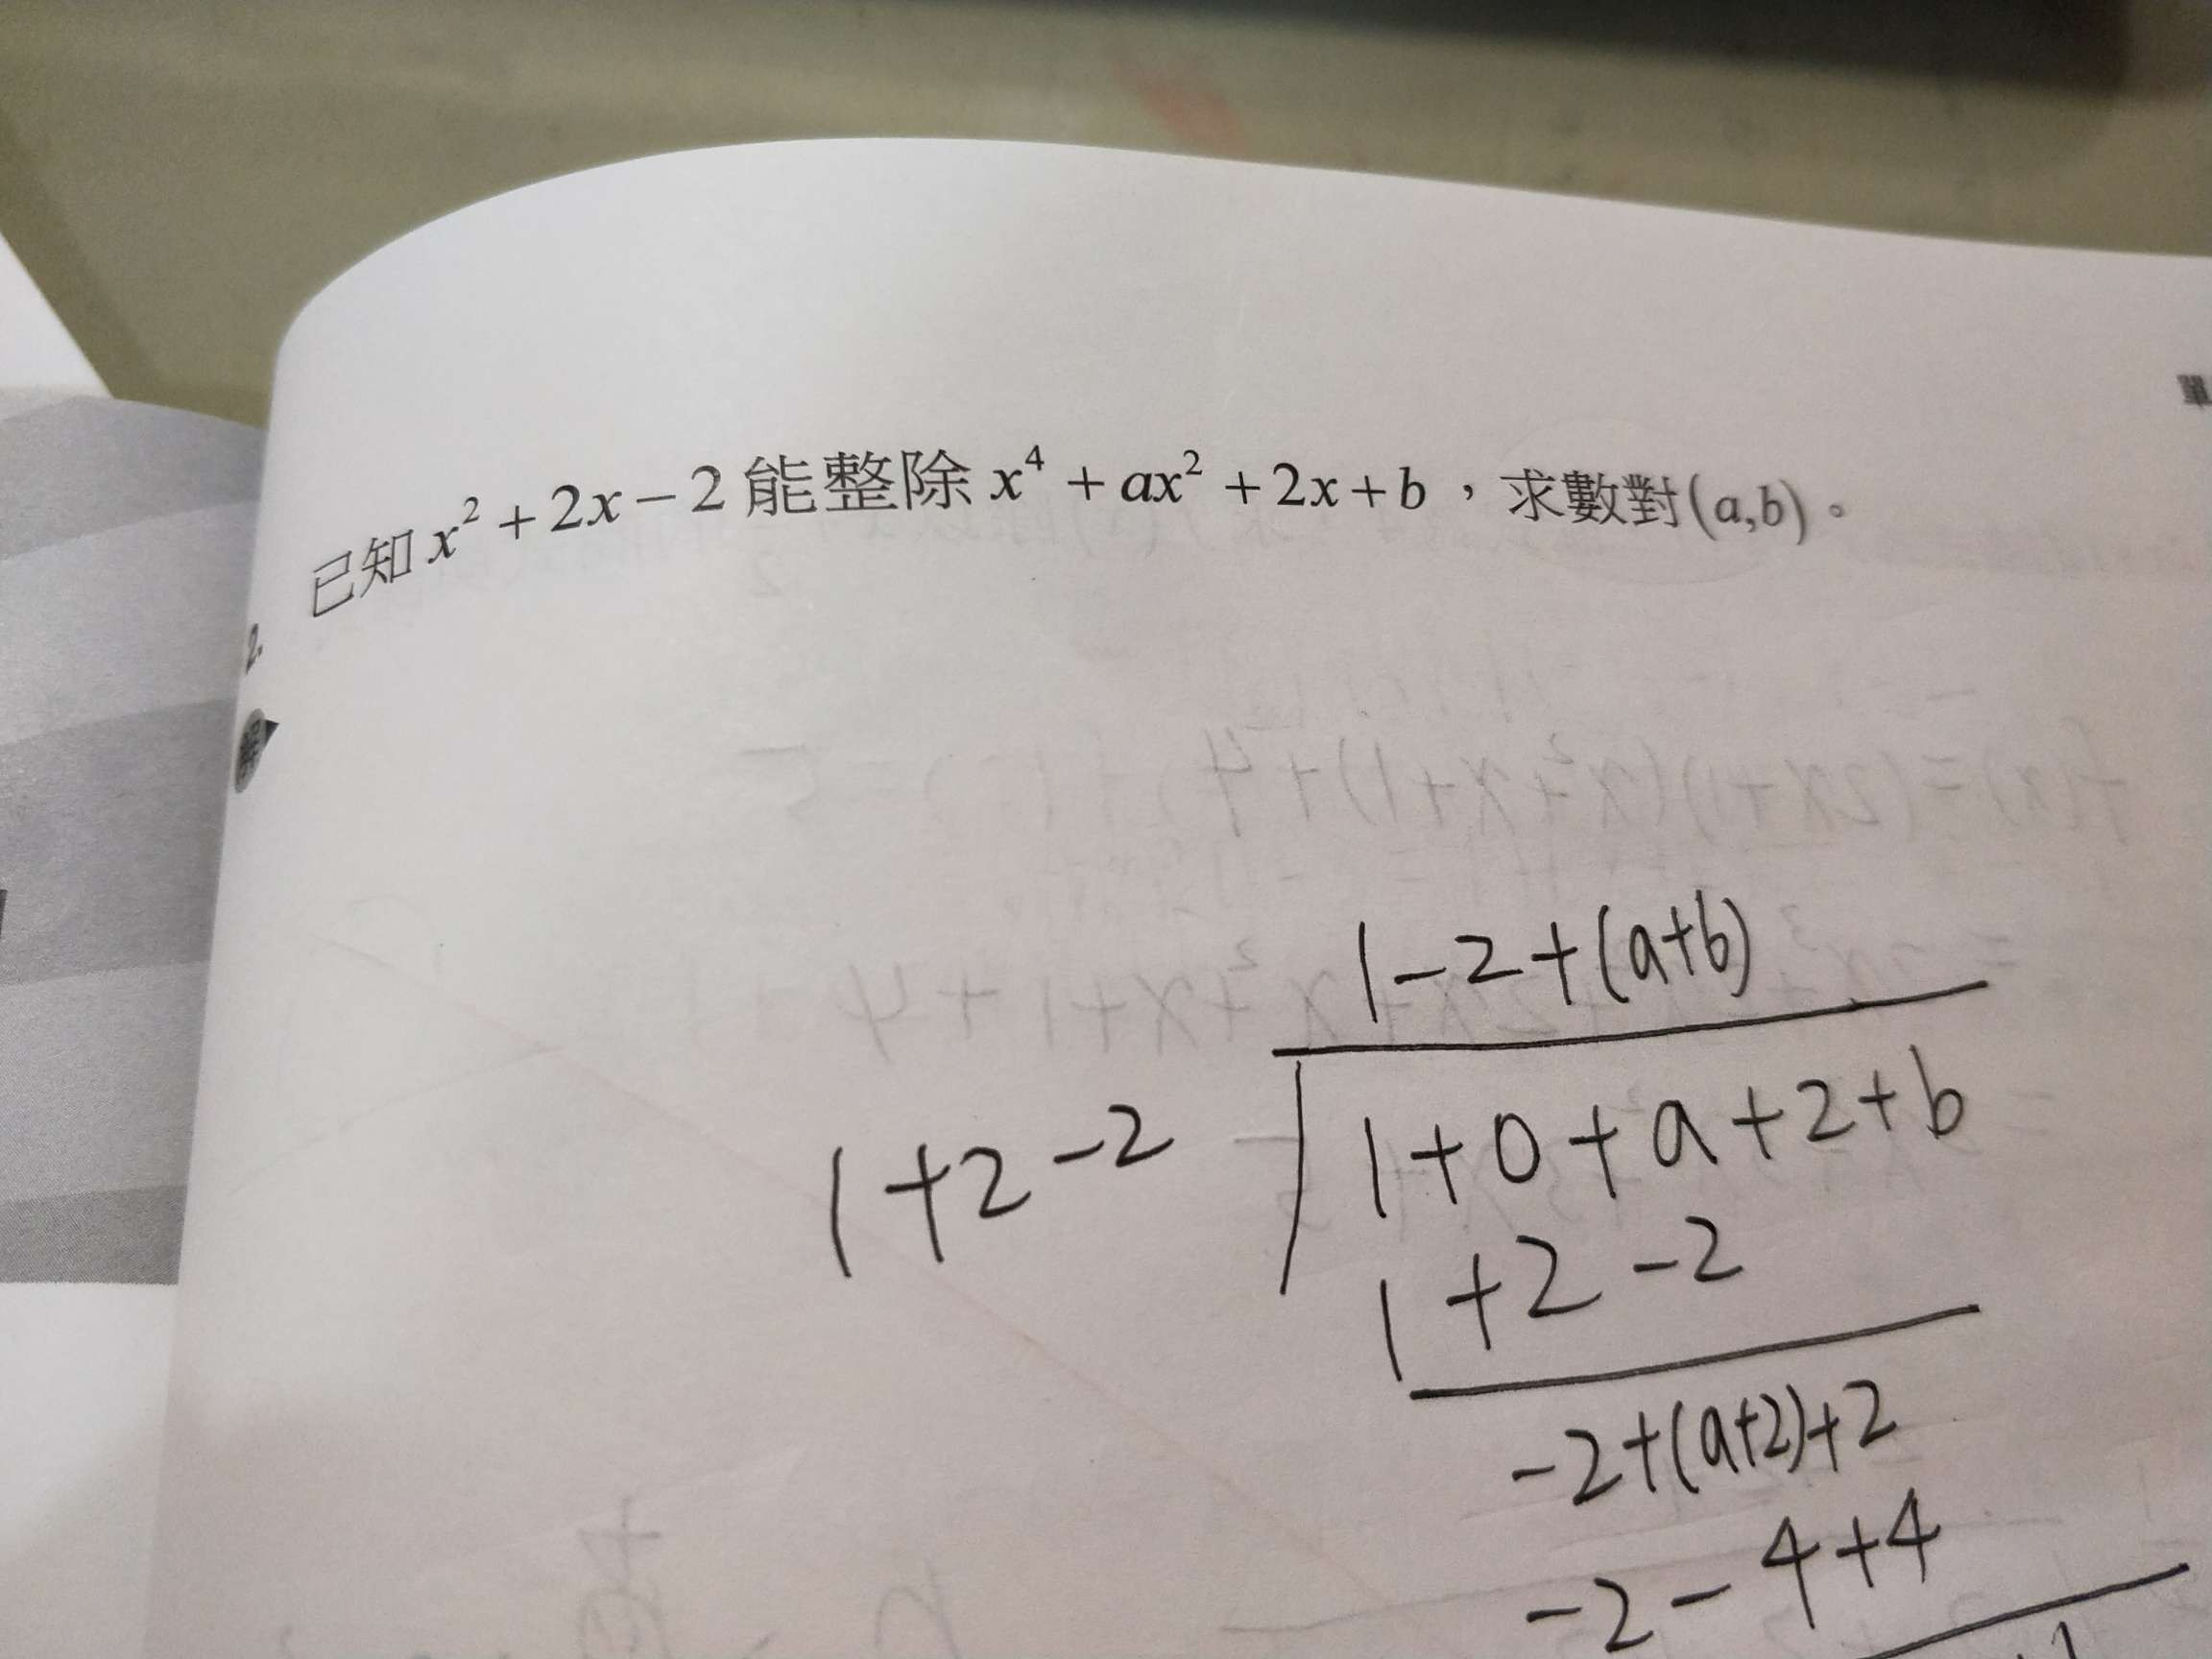 2. 已知 x² + 2x − 2 能整除 x⁴ + ax² + 2x + b，求數對(a,b)。
解
1-2+(a+b)
1+2-2
1+0+a+2+b
1+2-2
-2+(a+2)+2
-2-4+4